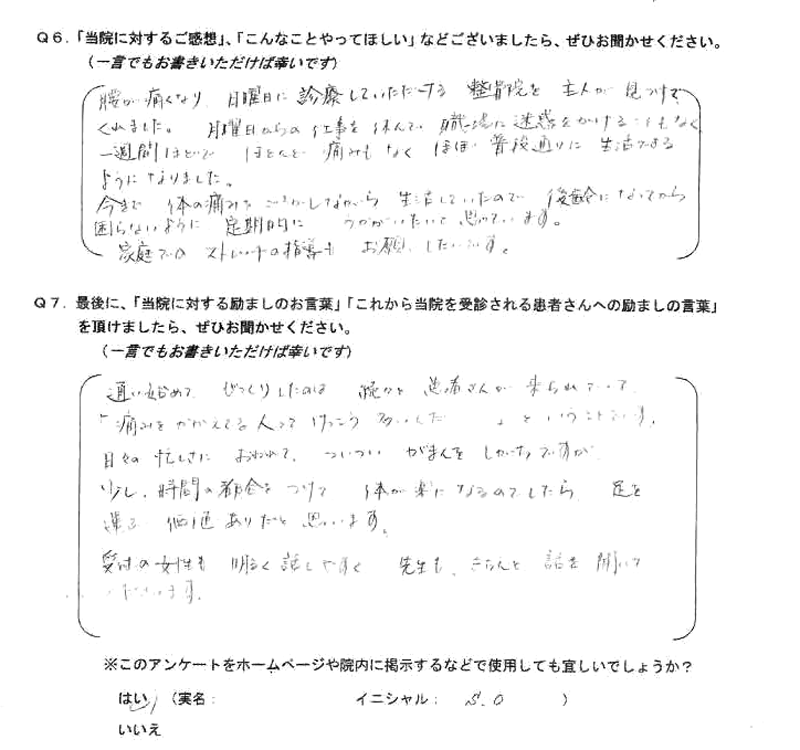 Q6.「当院に対するご感想」、「こんなことやってほしい」などございましたら、ぜひお聞かせください。
（一言でもお書きいただければ幸いです）
腰が痛くなり、日曜日に診療していただける整骨院を主人が見つけて
くれました。月曜日からの仕事を休んで、職場に迷惑をかけることもなく
一週間ほどで ほとんど痛みもなく ほぼ普段通りに生活できる
ようになりました。
今まで 体の痛みを ごまかしながら 生活していたので 後々になってから
困らないように 定期的に うかがいたいと思っています。
家庭での ストレッチの指導も お願いしたいです。
Q7. 最後に、「当院に対する励ましのお言葉」「これから当院を受診される患者さんへの励ましの言葉」
を頂けましたら、ぜひお聞かせください。
（一言でもお書きいただければ幸いです）
通い始めて びっくりしたのは 続々と 患者さんが 来られていて、
「痛みを かかえてる人って けっこう 多いんだ 」ということです。
日々の 忙しさに おわれて、ついつい がまんを しがちですが
少し、時間の都合をつけて 体が楽になるのでしたら 足を
運ぶ 価値ありだと 思います。
受付の女性も 明るく話しやすく 先生も、きちんと 話を聞いて
下さいます。
※このアンケートをホームページや院内に掲示するなどで使用しても宜しいでしょうか？
はい （実名： イニシャル： S.O ）
いいえ